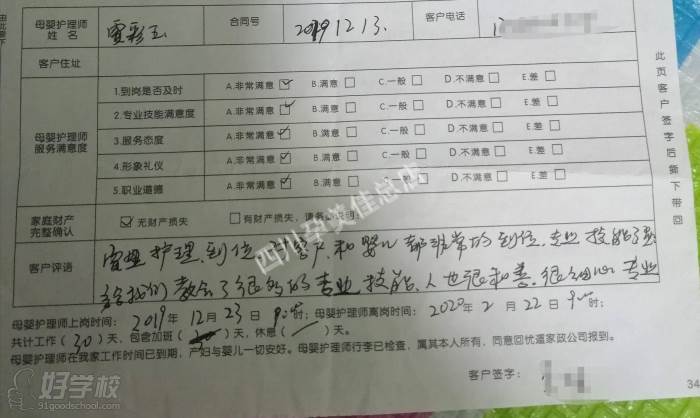 母婴护理师姓名 雷彩玉 合同号 2019 12 13. 客户电话
客户住址
母婴护理师服务满意度
1.到岗是否及时 A.非常满意 ☑ B.满意 □ C.一般 □ D.不满意 □ E.差 □
2.专业技能满意度 A.非常满意 ☑ B.满意 □ C.一般 □ D.不满意 □ E.差 □
3.服务态度 A.非常满意 ☑ B.满意 □ C.一般 □ D.不满意 □ E.差 □
4.形象礼仪 A.非常满意 ☑ B.满意 □ C.一般 □ D.不满意 □ E.差 □
5.职业道德 A.非常满意 ☑ B.满意 □ C.一般 □ D.不满意 □ E.差 □
家庭财产完整确认 ☑ 无财产损失 □ 有财产损失，请务必说明：
客户评语 护理到位，对客户和婴儿都非常的到位，专业技能
给我们教会了很多的专业技能，人也很和善，很细心 专业
母婴护理师上岗时间：2019 年 12 月 23 日 时；母婴护理师离岗时间：2020 年 2 月 22 日 时；
共计工作（30）天，包含加班（ ）天，休息（ ）天。
母婴护理师在我家工作时间已到期，产妇与婴儿一切安好。母婴护理师行李已检查，属其本人所有，同意回忧道家政公司报到。
客户签字：
此页客户签字后撕下带回
四川孕美佳总店
好学校
91goodschool.com
34